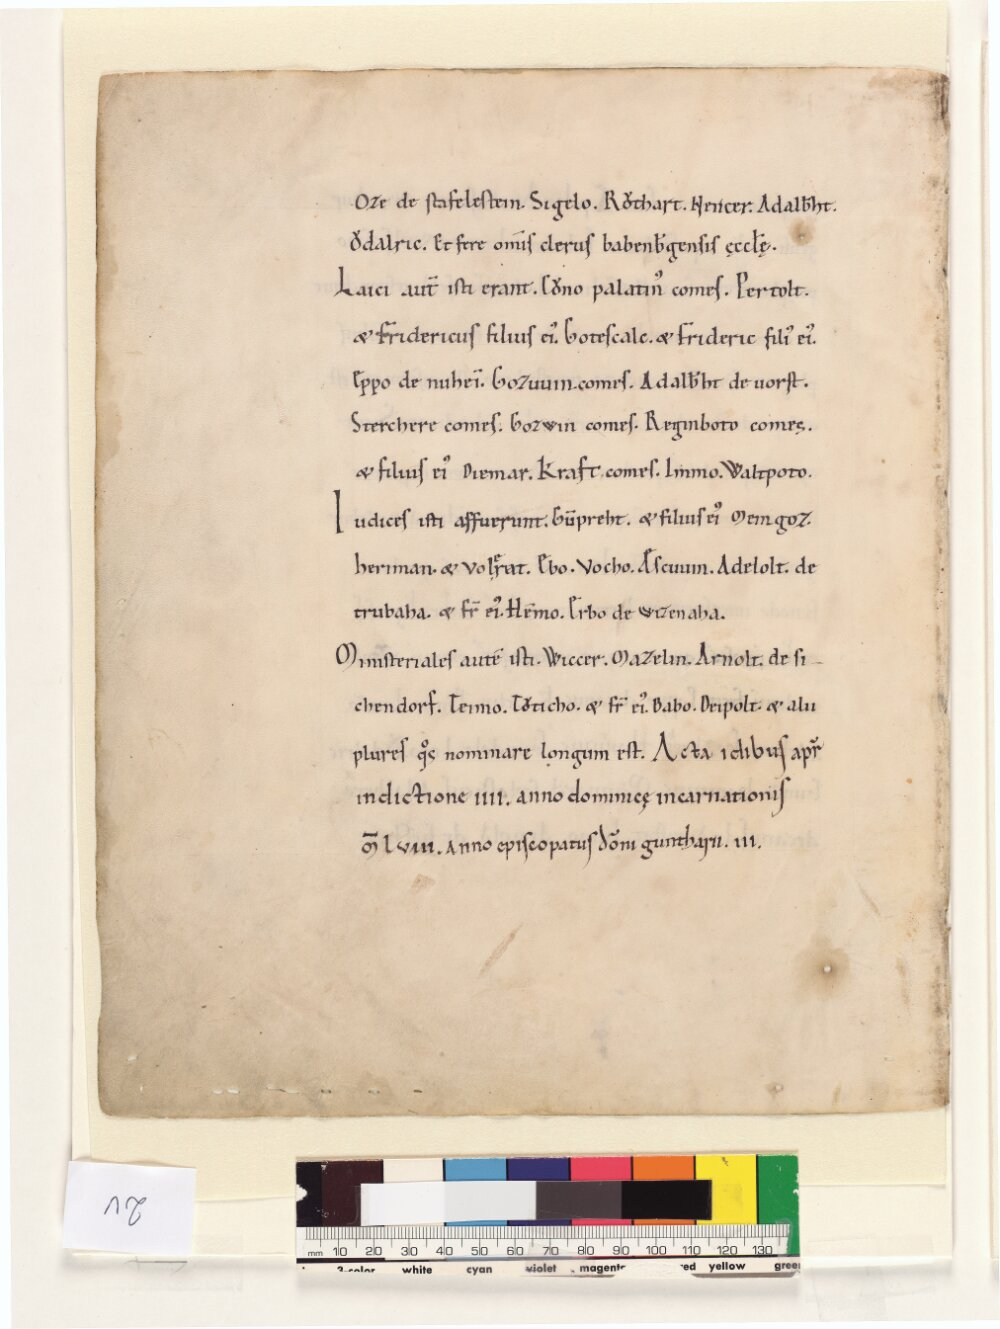 Oze de stafelestein. Sigelo. Rͦuthart. Hencer. Adalb̄ht.
ͦudalric. Et fere om̄is clerus babenb̄gensis ęccl̄ę.
Laici aut̄ isti erant. Cͦuno palatin⁹ comes. Pertolt.
& Fridericus filius ei⁹. Gotescalc. & Frideric fili⁹ ei⁹.
Eppo de nuhei̅. Gozuuin.comes. Adalb̄ht de uorst.
Sterchere comes. Gozwin comes. Reginboto comes.
& filius ei⁹ Diemar. Kraft.comes. Immo. Waltpoto.
Iudices isti affuerunt. Gū̄preht. & filius ei⁹ Meingoz.
heriman. & Volfrat. Ebo. Vocho. Æscuuin. Adelolt. de
trubaha. & fr̄ ei⁹. Hēmo. Erbo de wizenaha.
Ministeriales autē isti. Wiccer. Mazelin. Arnolt. de si
chendorf. Teimo. Tͦuticho. & fr̄ ei⁹. Babo. Deipolt. & alii
plures qͦs nominare longum est. Acta idibus apr̄
indictione IIII. anno dominicę incarnationis
M̄ LVIII. Anno episcopatus dōm guntharii. III.
mm 10 20 30 40 50 60 70 80 90 100 110 120 130
3-color white cyan violet magenta red yellow green